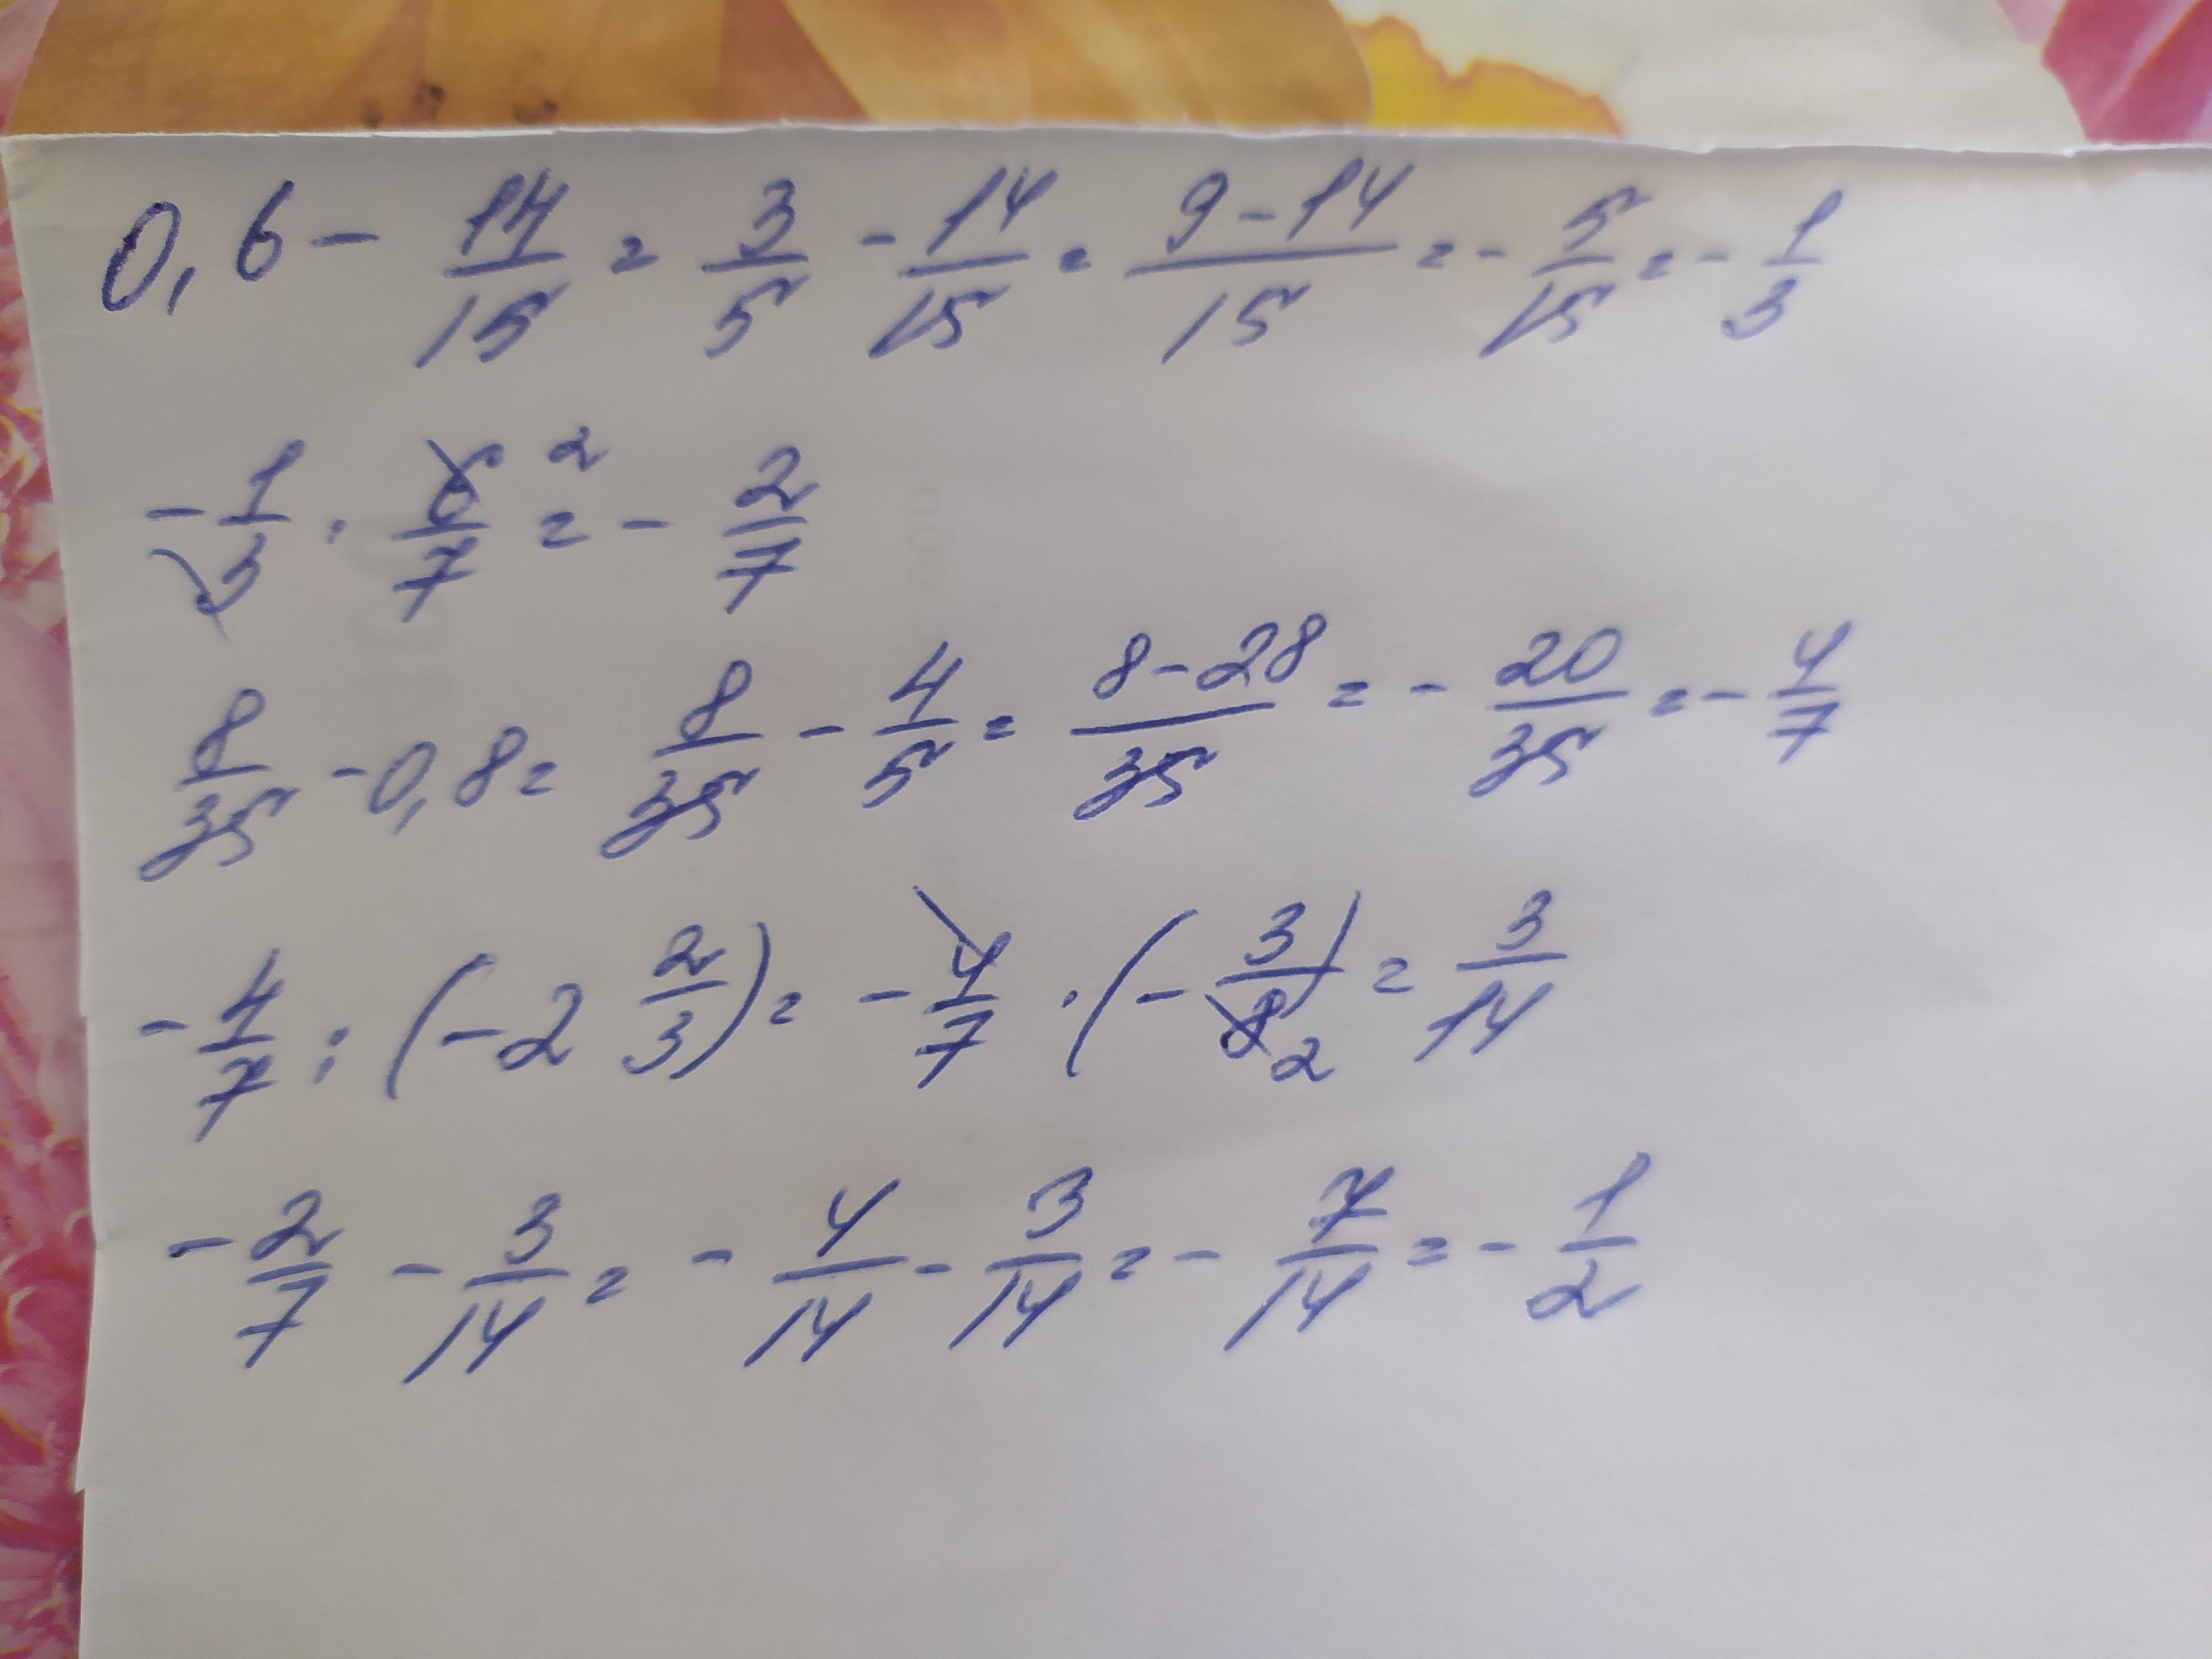 0,6 - 14/15 = 3/5 - 14/15 = (9-14)/15 = - 5/15 = - 1/3
- 1/3 · 6/7 2 = - 2/7
8/35 - 0,8 = 8/35 - 4/5 = (8-28)/35 = - 20/35 = - 4/7
- 4/7 : (-2 2/3) = - 4/7 · (- 3/8 2) = 3/14
- 2/7 - 3/14 = - 4/14 - 3/14 = - 7/14 = - 1/2